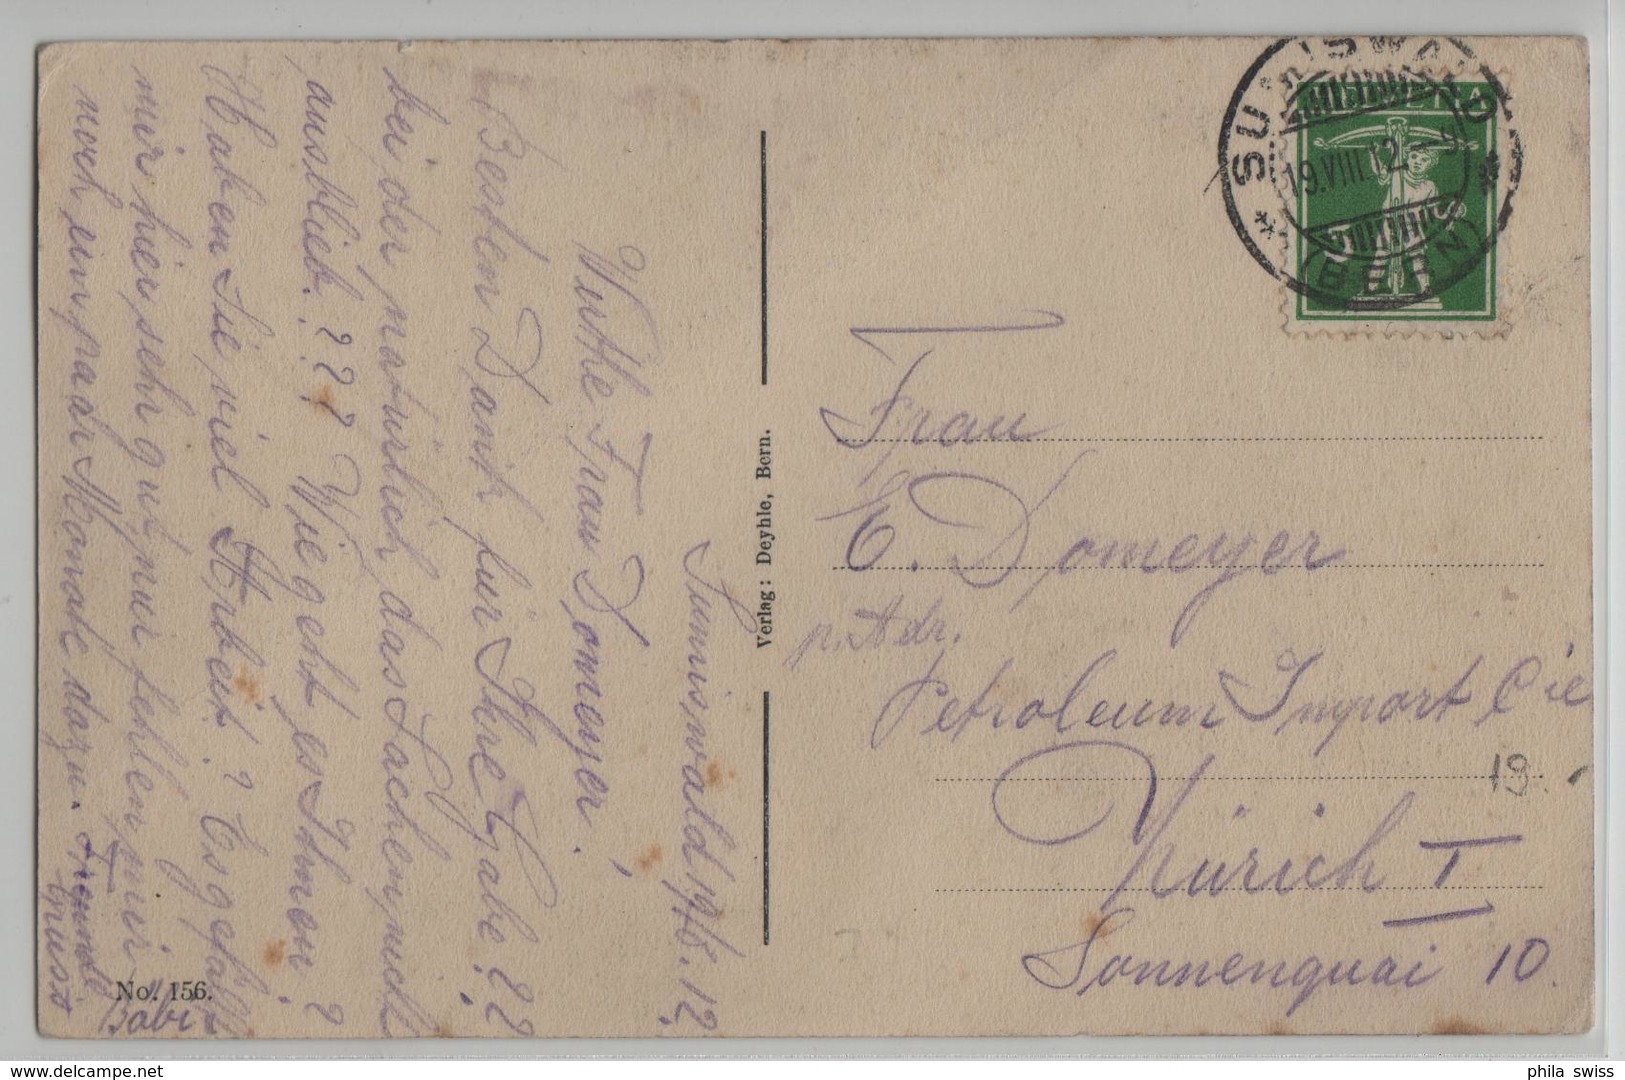 Sumiswald 19/8. 12.
Werthe Frau Domeyer!
Besten Dank für Ihre Gabe! ??
bei der natürlich das Lachen nicht
ausblieb. ??? Wie geht es Ihnen?
Haben Sie viel Arbeit? Es gefällt
mir hier sehr gut, nur fehlen mir
noch ein paar Monate dazu. Freundl.
Gruss
Babi
No. 156.
Verlag: Deyhle, Bern.
SUMISWALD
19.VIII.12.
(BERN)
HELVETIA
Frau
E. Domeyer
p. Adr.
Petroleum Import Cie
19.
Zürich I
Sonnenquai 10.
phila swiss